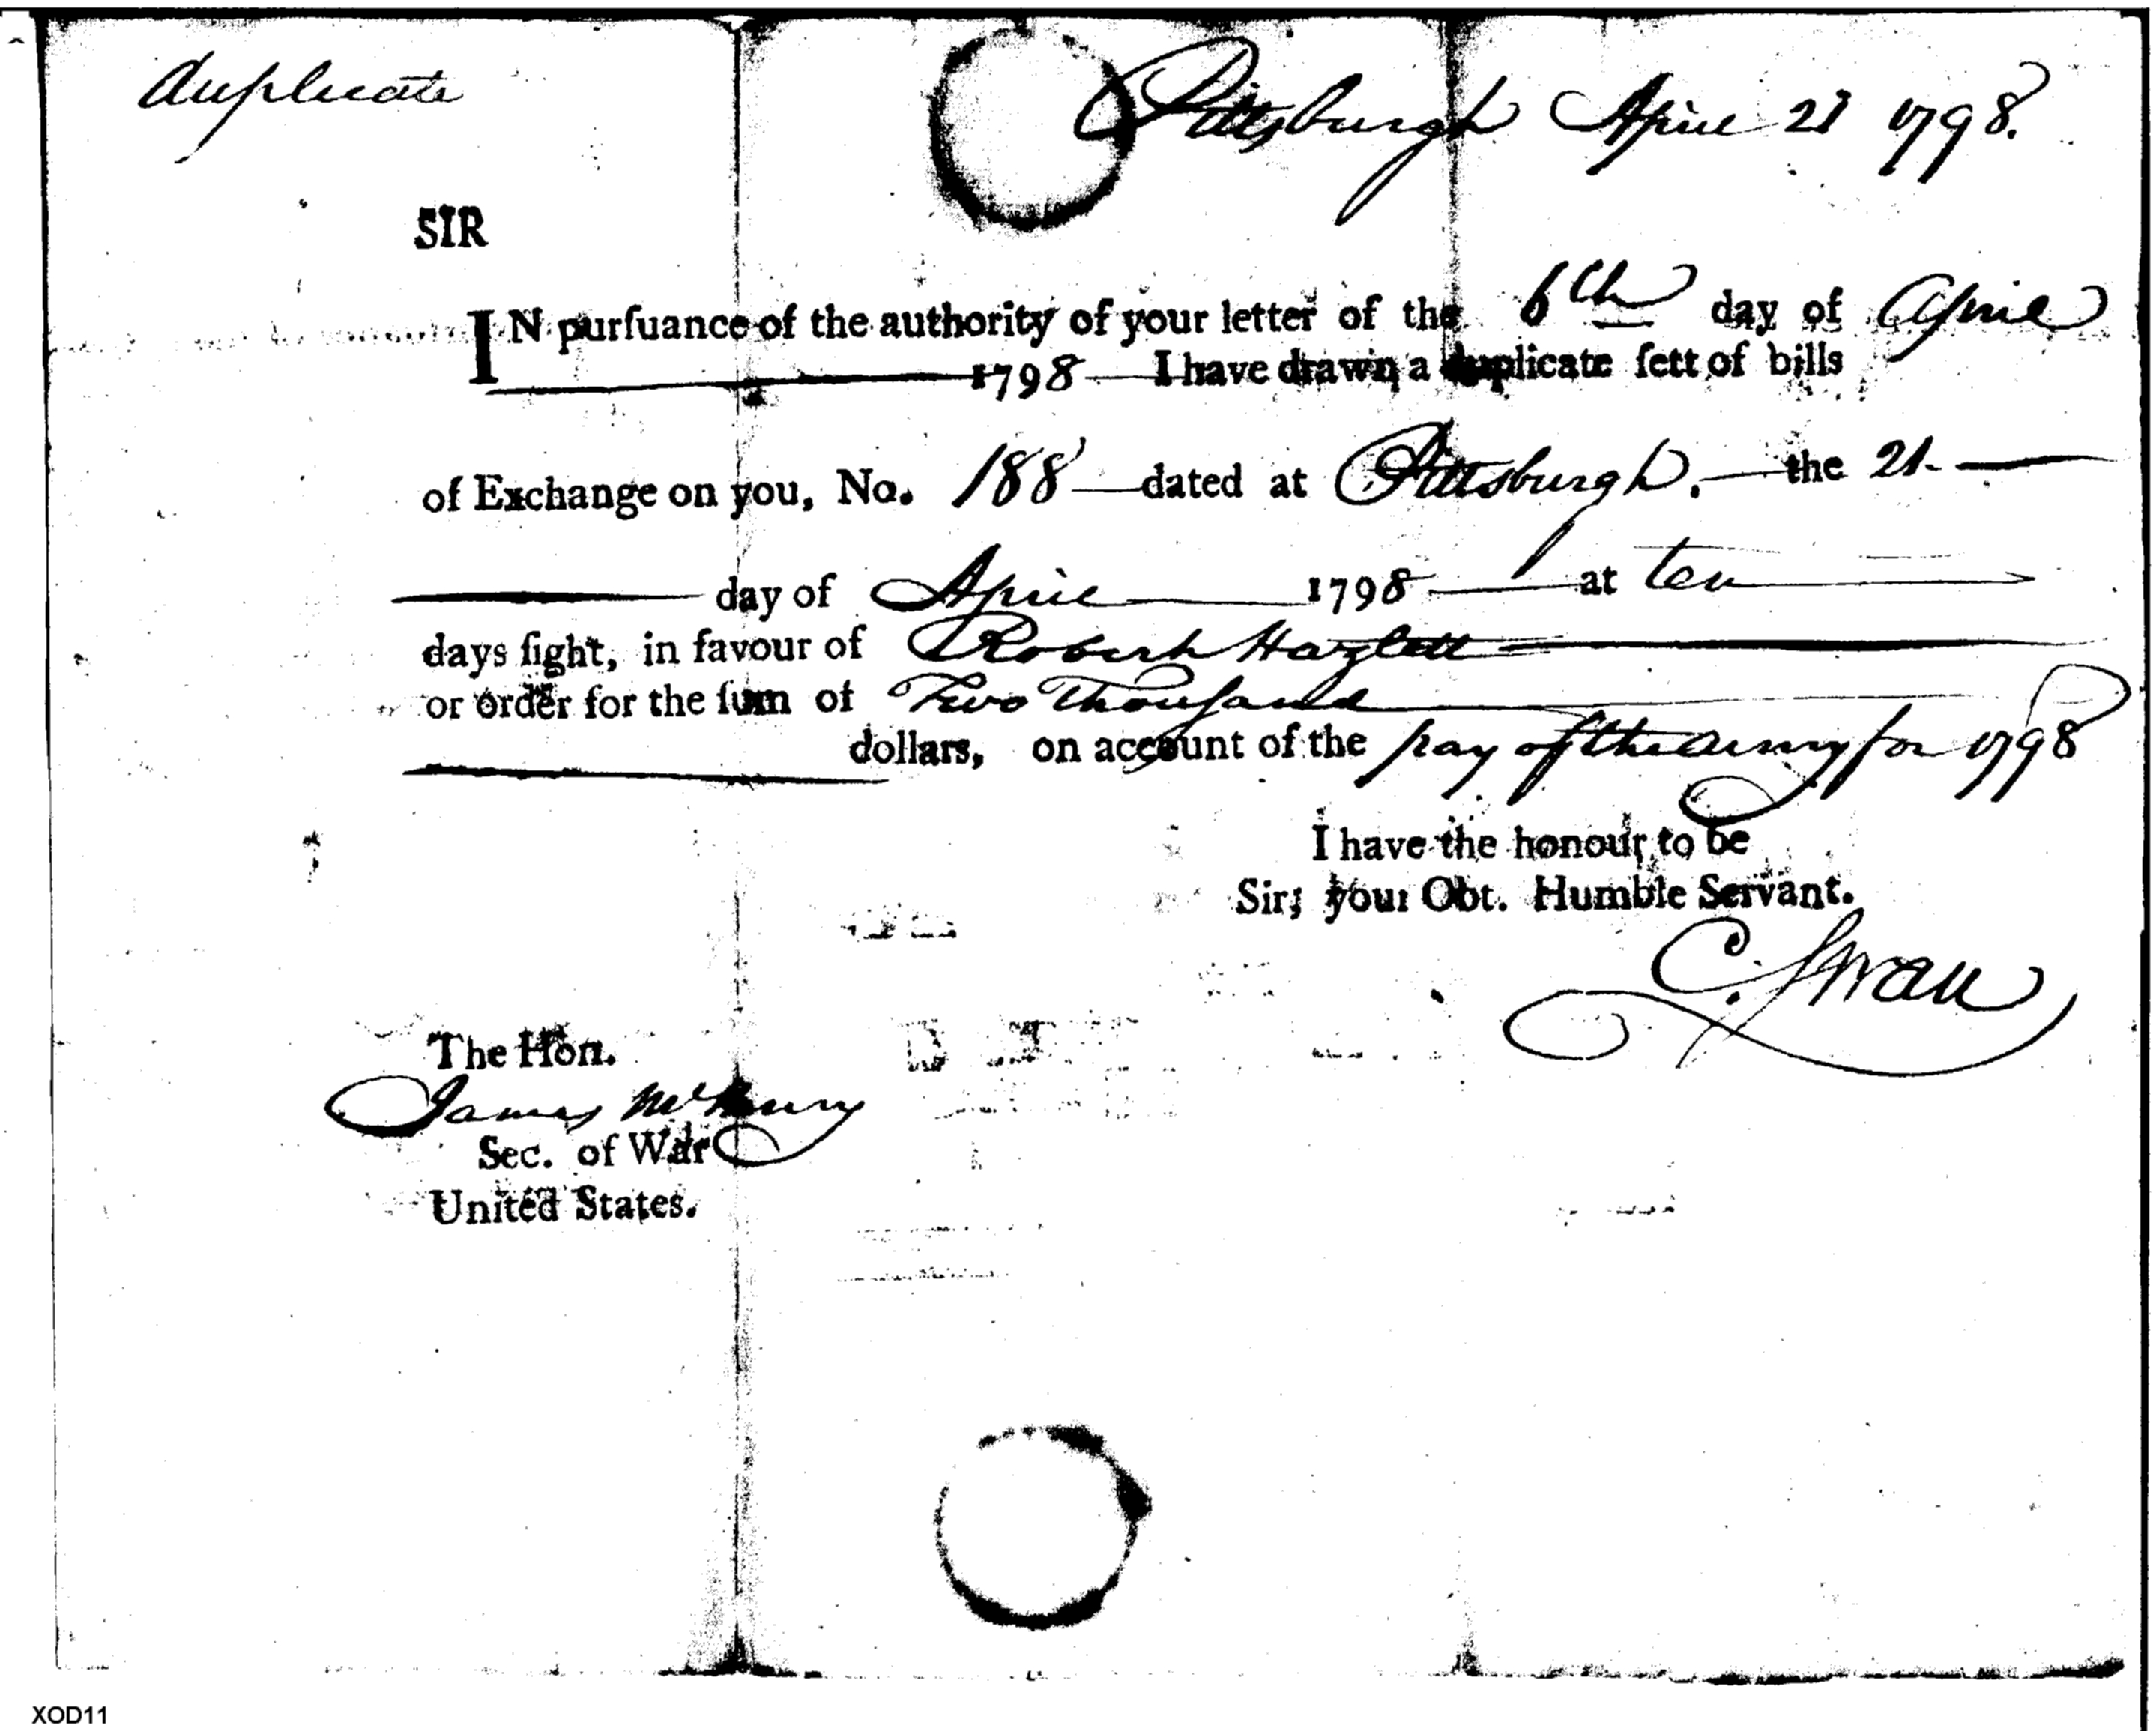 duplicate
Pittsburgh April 21 1798.
SIR
IN purſuance of the authority of your letter of the 6th day of April
1798 I have drawn a duplicate ſett of bills
of Exchange on you, No. 188 dated at Pittsburgh. the 21.
day of April 1798 at ten
days ſight, in favour of Robert Hazlett
or order for the ſum of Two Thouſand
dollars, on account of the pay of the Army for 1798
I have the honour to be
Sir; your Obt. Humble Servant.
C. Swan
The Hon.
James McHenry
Sec. of War
United States.
XOD11